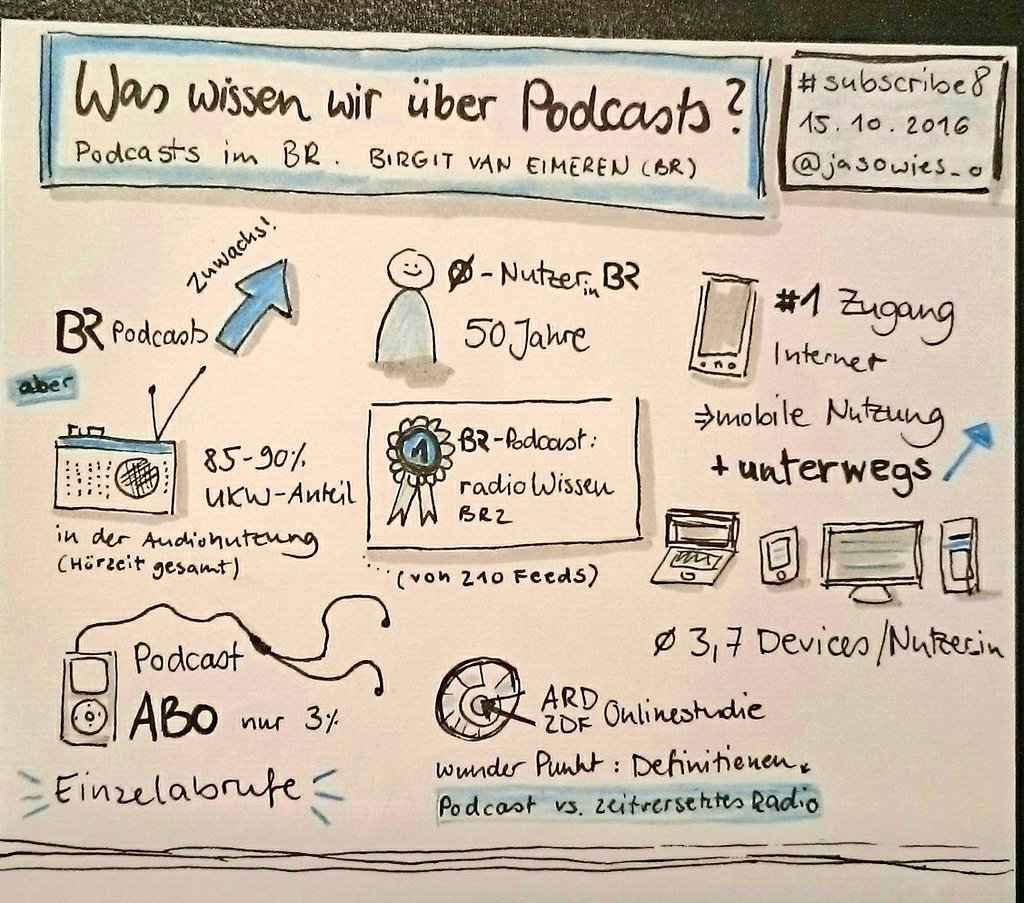 Was wissen wir über Podcasts?
Podcasts im BR. BIRGIT VAN EIMEREN (BR)
#subscribe8
15.10.2016
@jasowies_o
Zuwachs!
BR Podcasts
aber
85-90%
UKW-Anteil
in der Audionutzung
(Hörzeit gesamt)
Ø-Nutzer.in BR
50 Jahre
1
BR-Podcast:
radioWissen
BR2
(von 210 Feeds)
#1 Zugang
Internet
⇒mobile Nutzung
+unterwegs
Ø 3,7 Devices/Nutzer.in
Podcast
ABO nur 3%
Einzelabrufe
ARD
ZDF Onlinestudie
wunder Punkt: Definitionen.
Podcast vs. zeitversetztes Radio